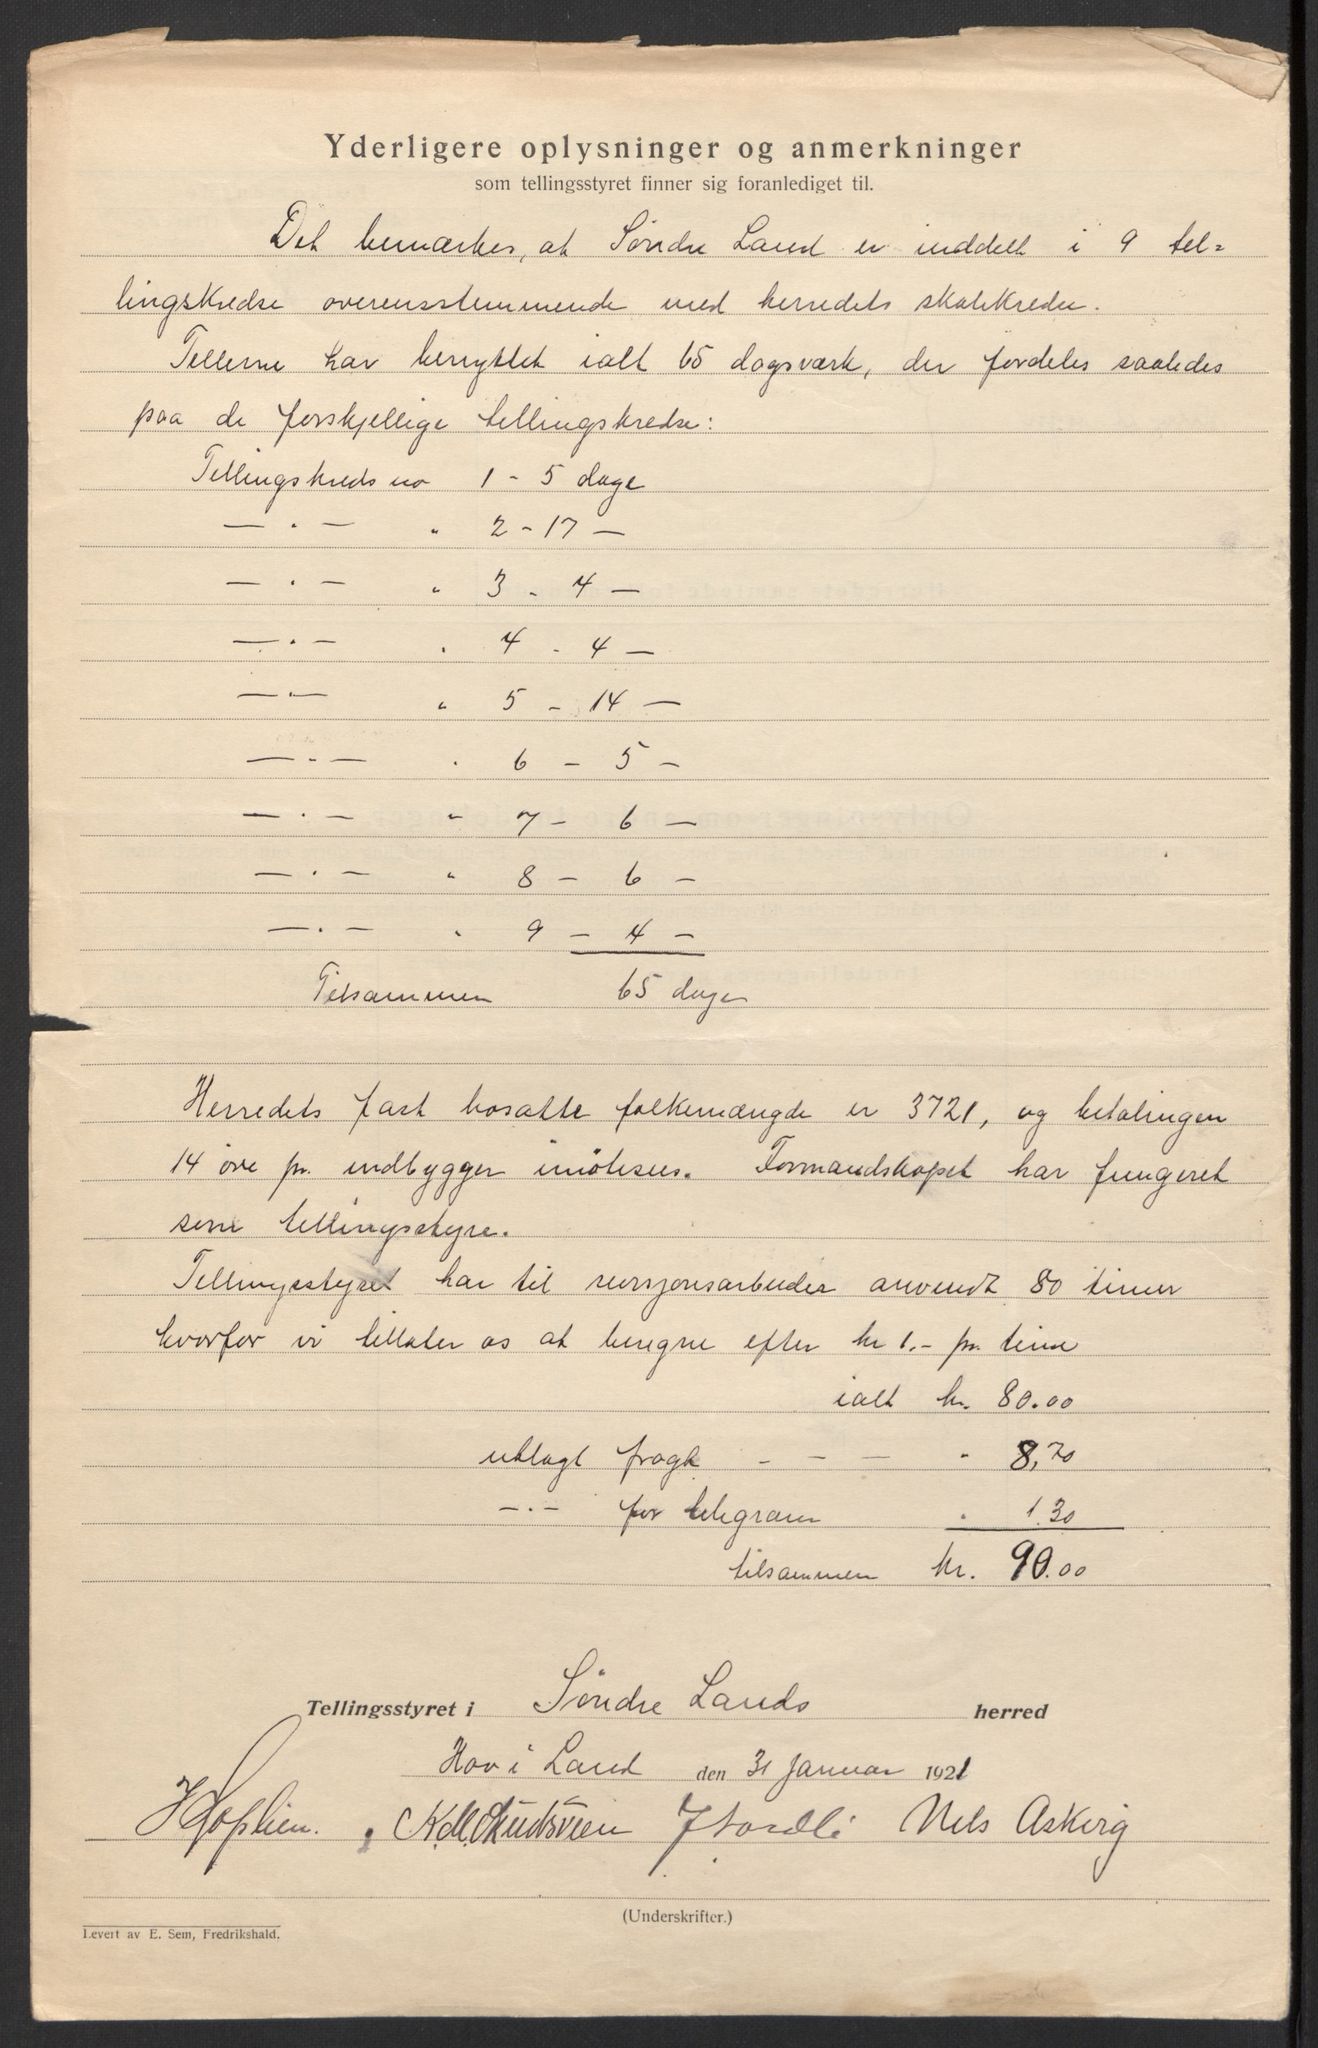 Yderligere oplysninger og anmerkninger
som tellingsstyret finner sig foranlediget til.
Det bemærkes, at Søndre Land er inddelt i 9 tel=
lingskredse overensstemmende med herredets skolekredse.
Tellerne har benyttet ialt 65 dagsværk, der fordeles saaledes
paa de forskjellige tellingskredse:
Tellingskreds no 1 - 5 dage
— " — " 2 - 17 —
— " — " 3 - 4 —
— " — " 4 - 4 —
— " — " 5 - 14 —
— " — " 6 - 5 —
— " — " 7 - 6 —
— " — " 8 - 6 —
— " — " 9 - 4 —
Tilsammen 65 dage
Herredets fast bosatte folkemængde er 3721, og betalingen
14 øre pr. indbygger imøtesees. Formandskapet har fungeret
som tellingsstyre.
Tellingsstyret har til revisjonsarbeider anvendt 80 timer
hvorfor vi tillater os at beregne efter kr 1.- pr. time
ialt kr. 80.00
utlagt fragt - - - " 8,70
— " — for telegram " 1.30
tilsammen kr. 90.00
Tellingsstyret i Søndre Lands herred
Hov i Land den 31 januar 1921
K.M. Skudsveen J Nordli Nels Askvig
(Underskrifter.)
Levert av E. Sem, Fredrikshald.